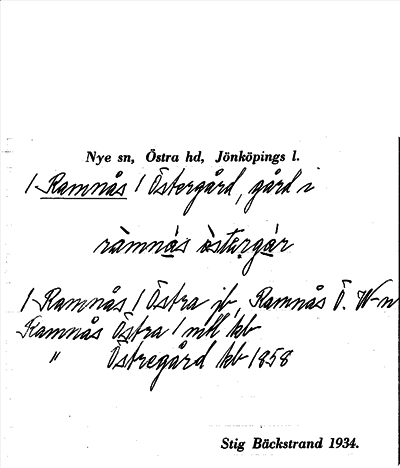 Nye sn, Östra hd, Jönköpings l.
/ Ramnås / Östergård, gård i
ràmnás òstu̇rgár
/ Ramnås / Östra jb, Ramnås Ö. W-n
Ramnås Östra / mtl kb
" Östregård kb 1858
Stig Bäckstrand 1934.